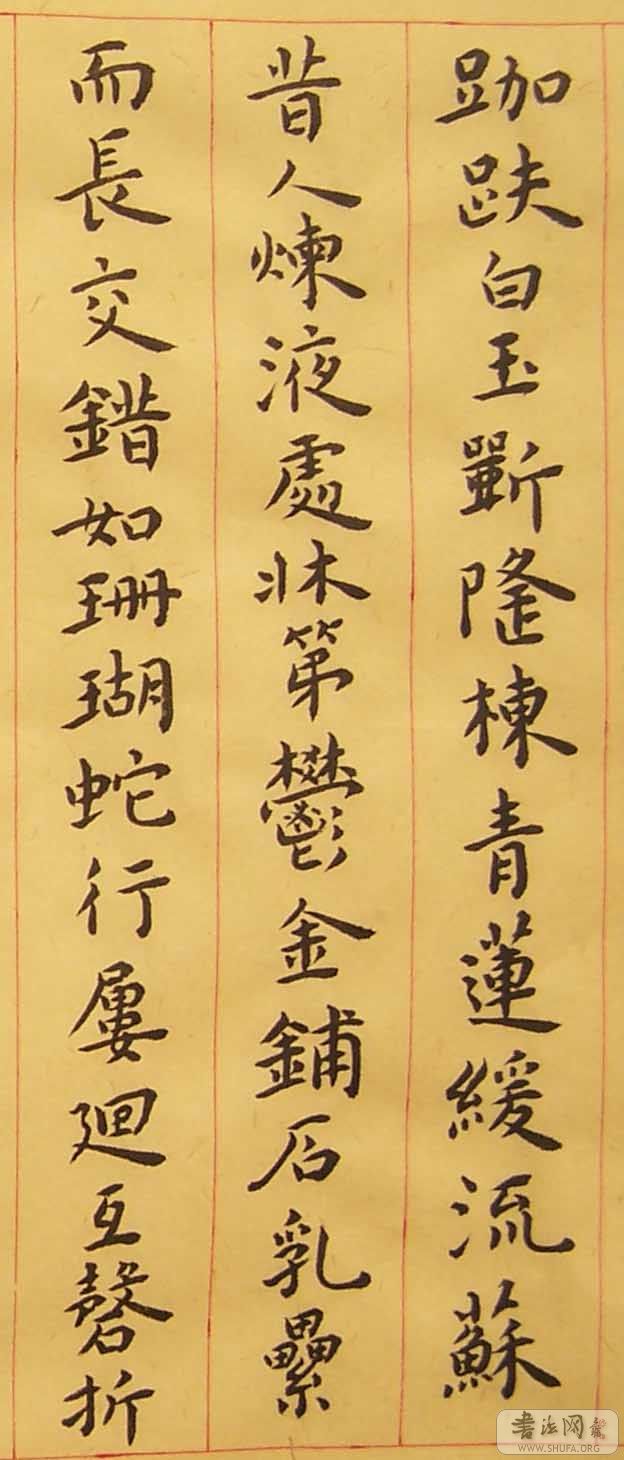 跏趺白玉斲隆棟青蓮緩流蘇
昔人煉液處牀第鬱金鋪石乳纍
而長交錯如珊瑚蛇行屢迴互磬折
書法网
WWW.SHUFA.ORG